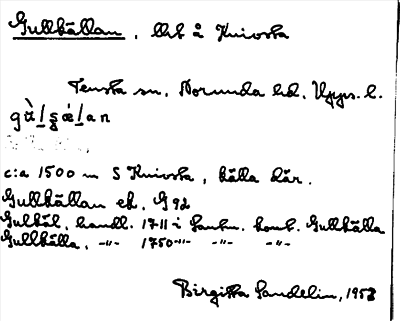 Gullkällan, llst å Knivsta
Tensta sn, Norunda hd, Upps. l.
c:a 1500 m S Knivsta, källa där.
Gullkällan ek. G 92
Gulkäl. handl. 1711 i Lantm. kont. Gullkälla
Gullkälla, -"- 1750 -"- -"- -"-
Birgitta Sandelin, 1953